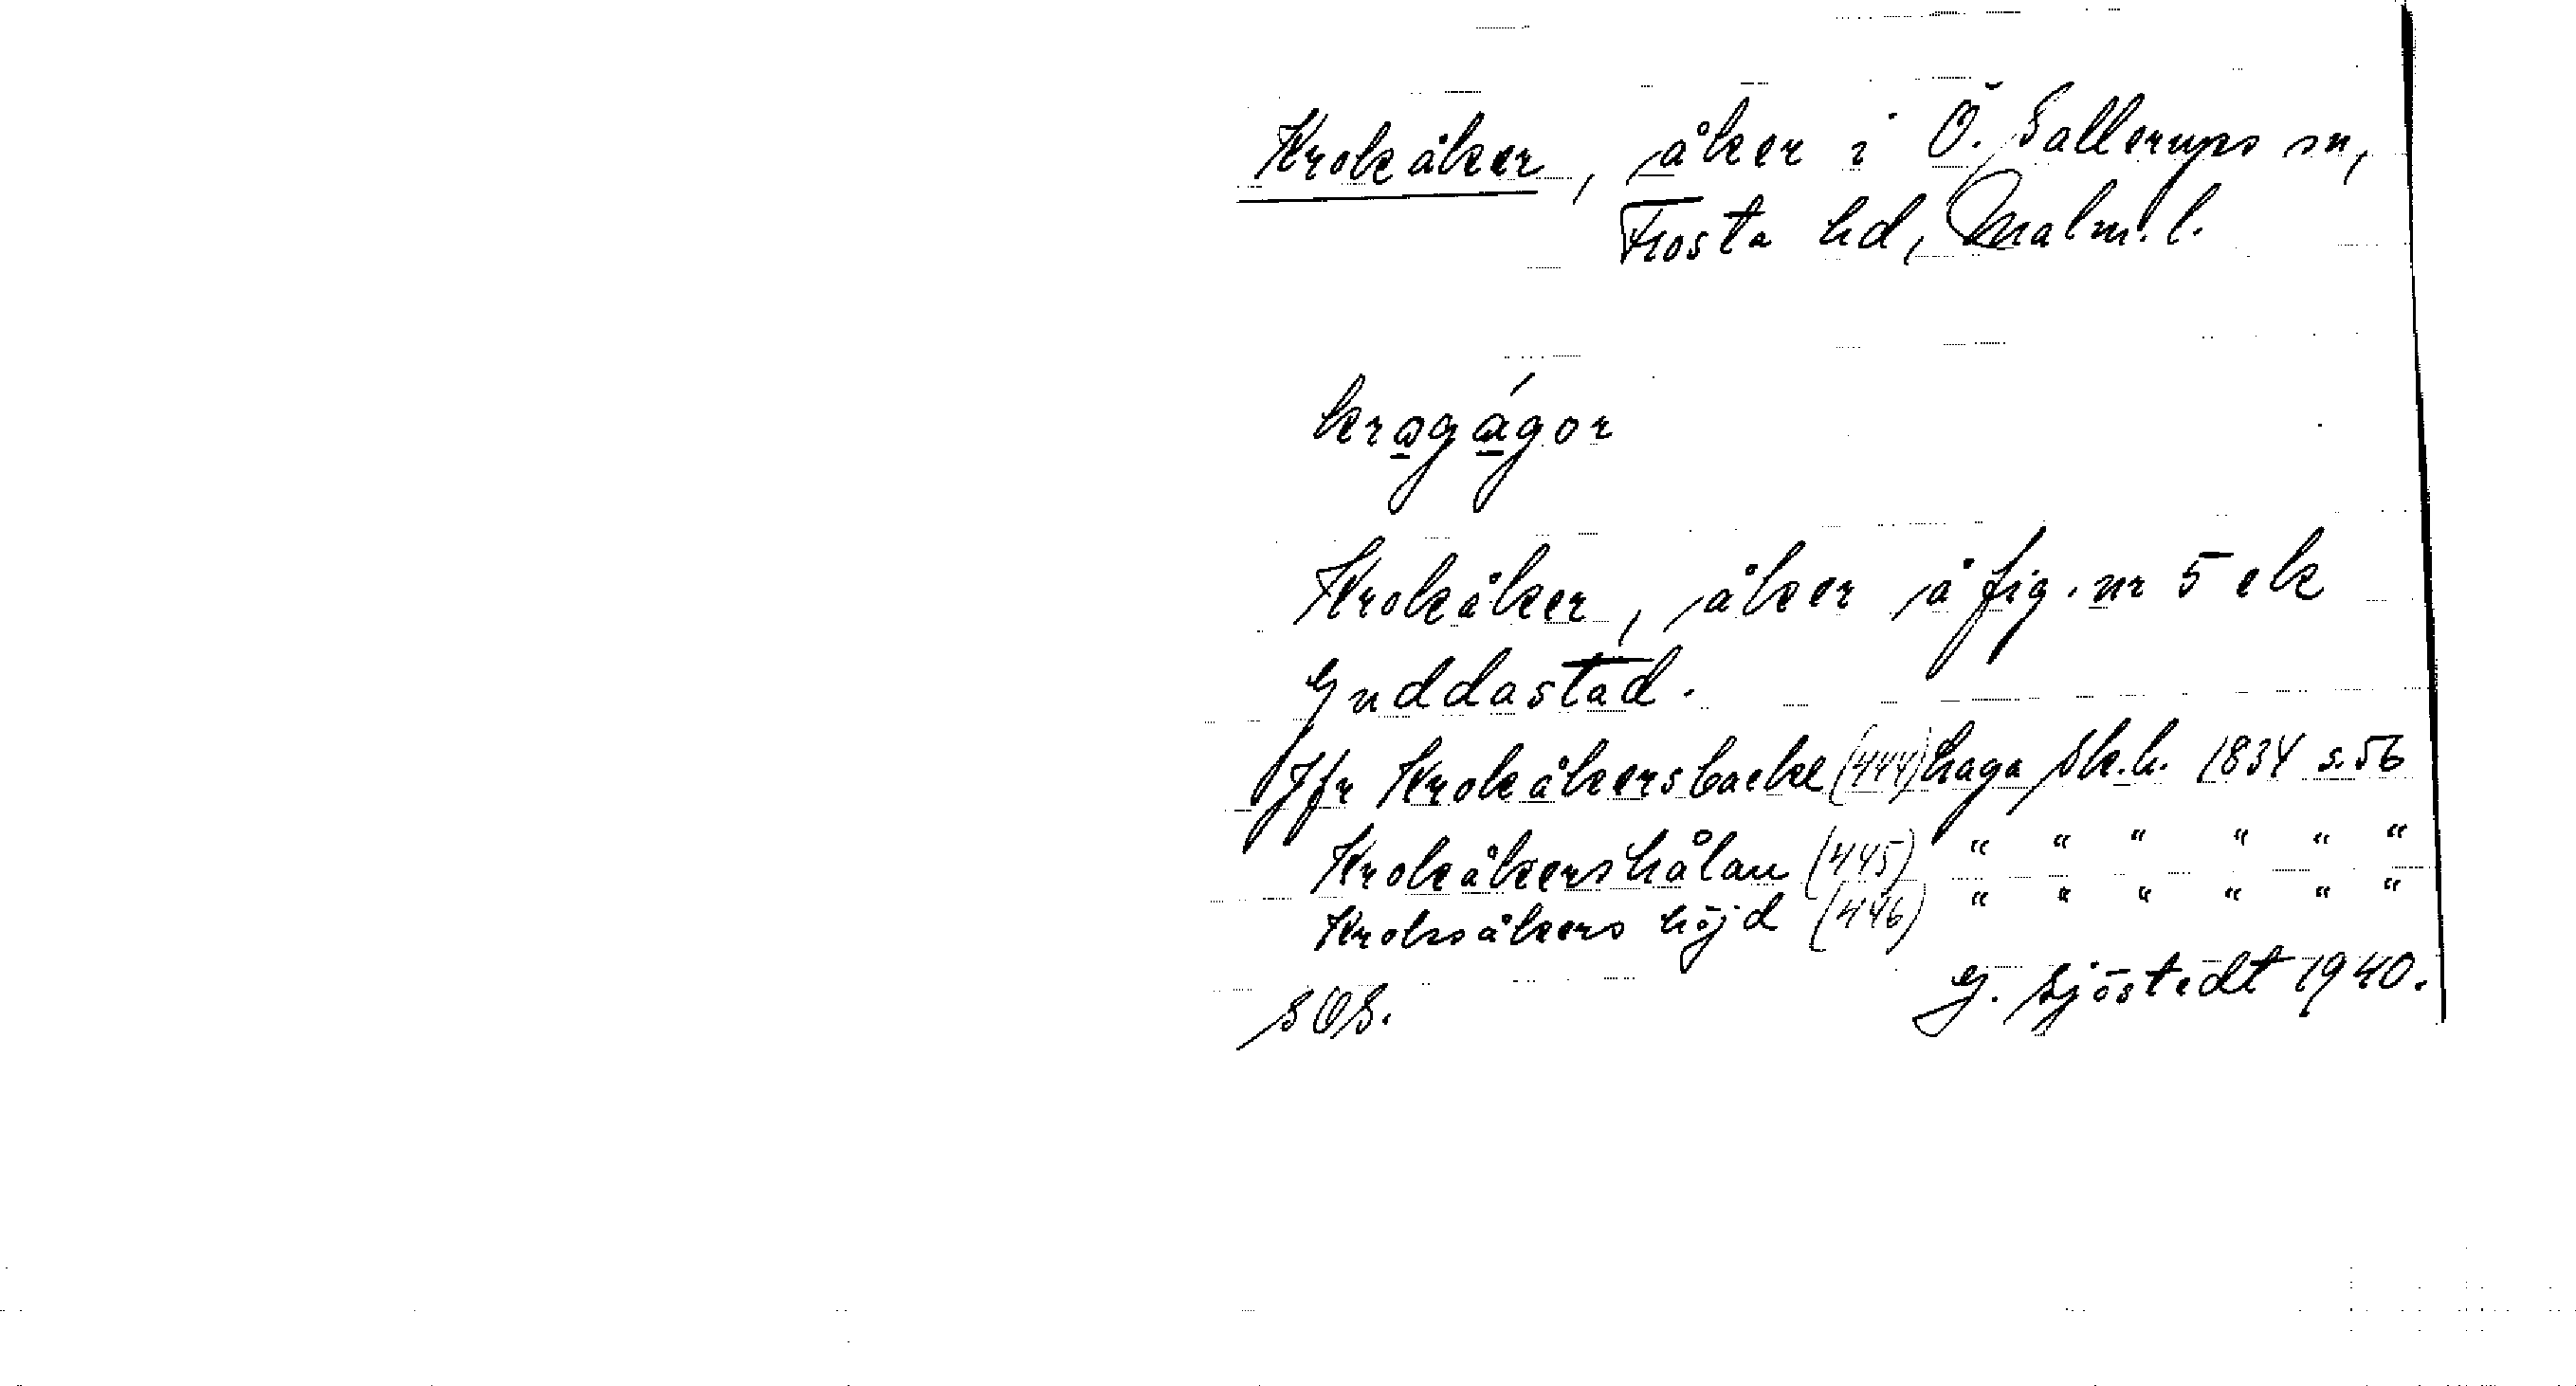 Krokåker, åker i Ö. Sallerups sn,
Frosta hd, Malm. l.
krogågor
Krokåker, åker å fig. nr 5 ek
Guddastad.
Jfr Krokåkersbacke (444) haga Sk.h. 1834 s. 56
Krokåkershålan (445) " " " " " "
Kroksåkers höjd (446) " " " " " "
SOS. G. Sjöstedt 1940.